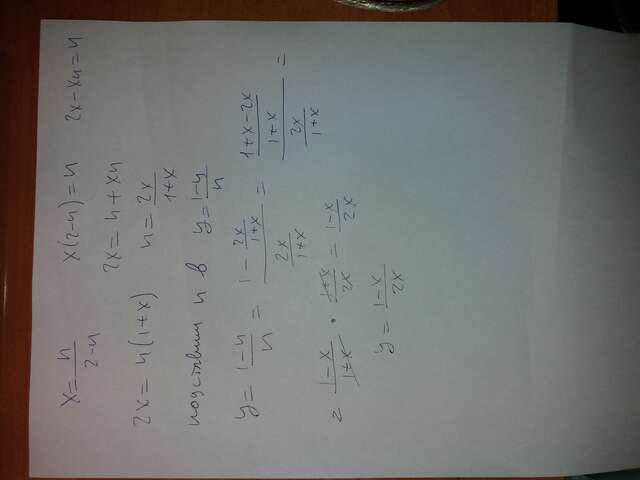 x = n/(2-n)   x(2-n) = n   2x - xn = n
2x = n + xn
2x = n(1+x)   n = 2x/(1+x)
подставим n в y = (1-n)/n
y = (1-n)/n = (1 - 2x/(1+x))/(2x/(1+x)) = ((1+x-2x)/(1+x))/(2x/(1+x)) =
= (1-x)/(1+x) · (1+x)/(2x) = (1-x)/(2x)
y = (1-x)/(2x)